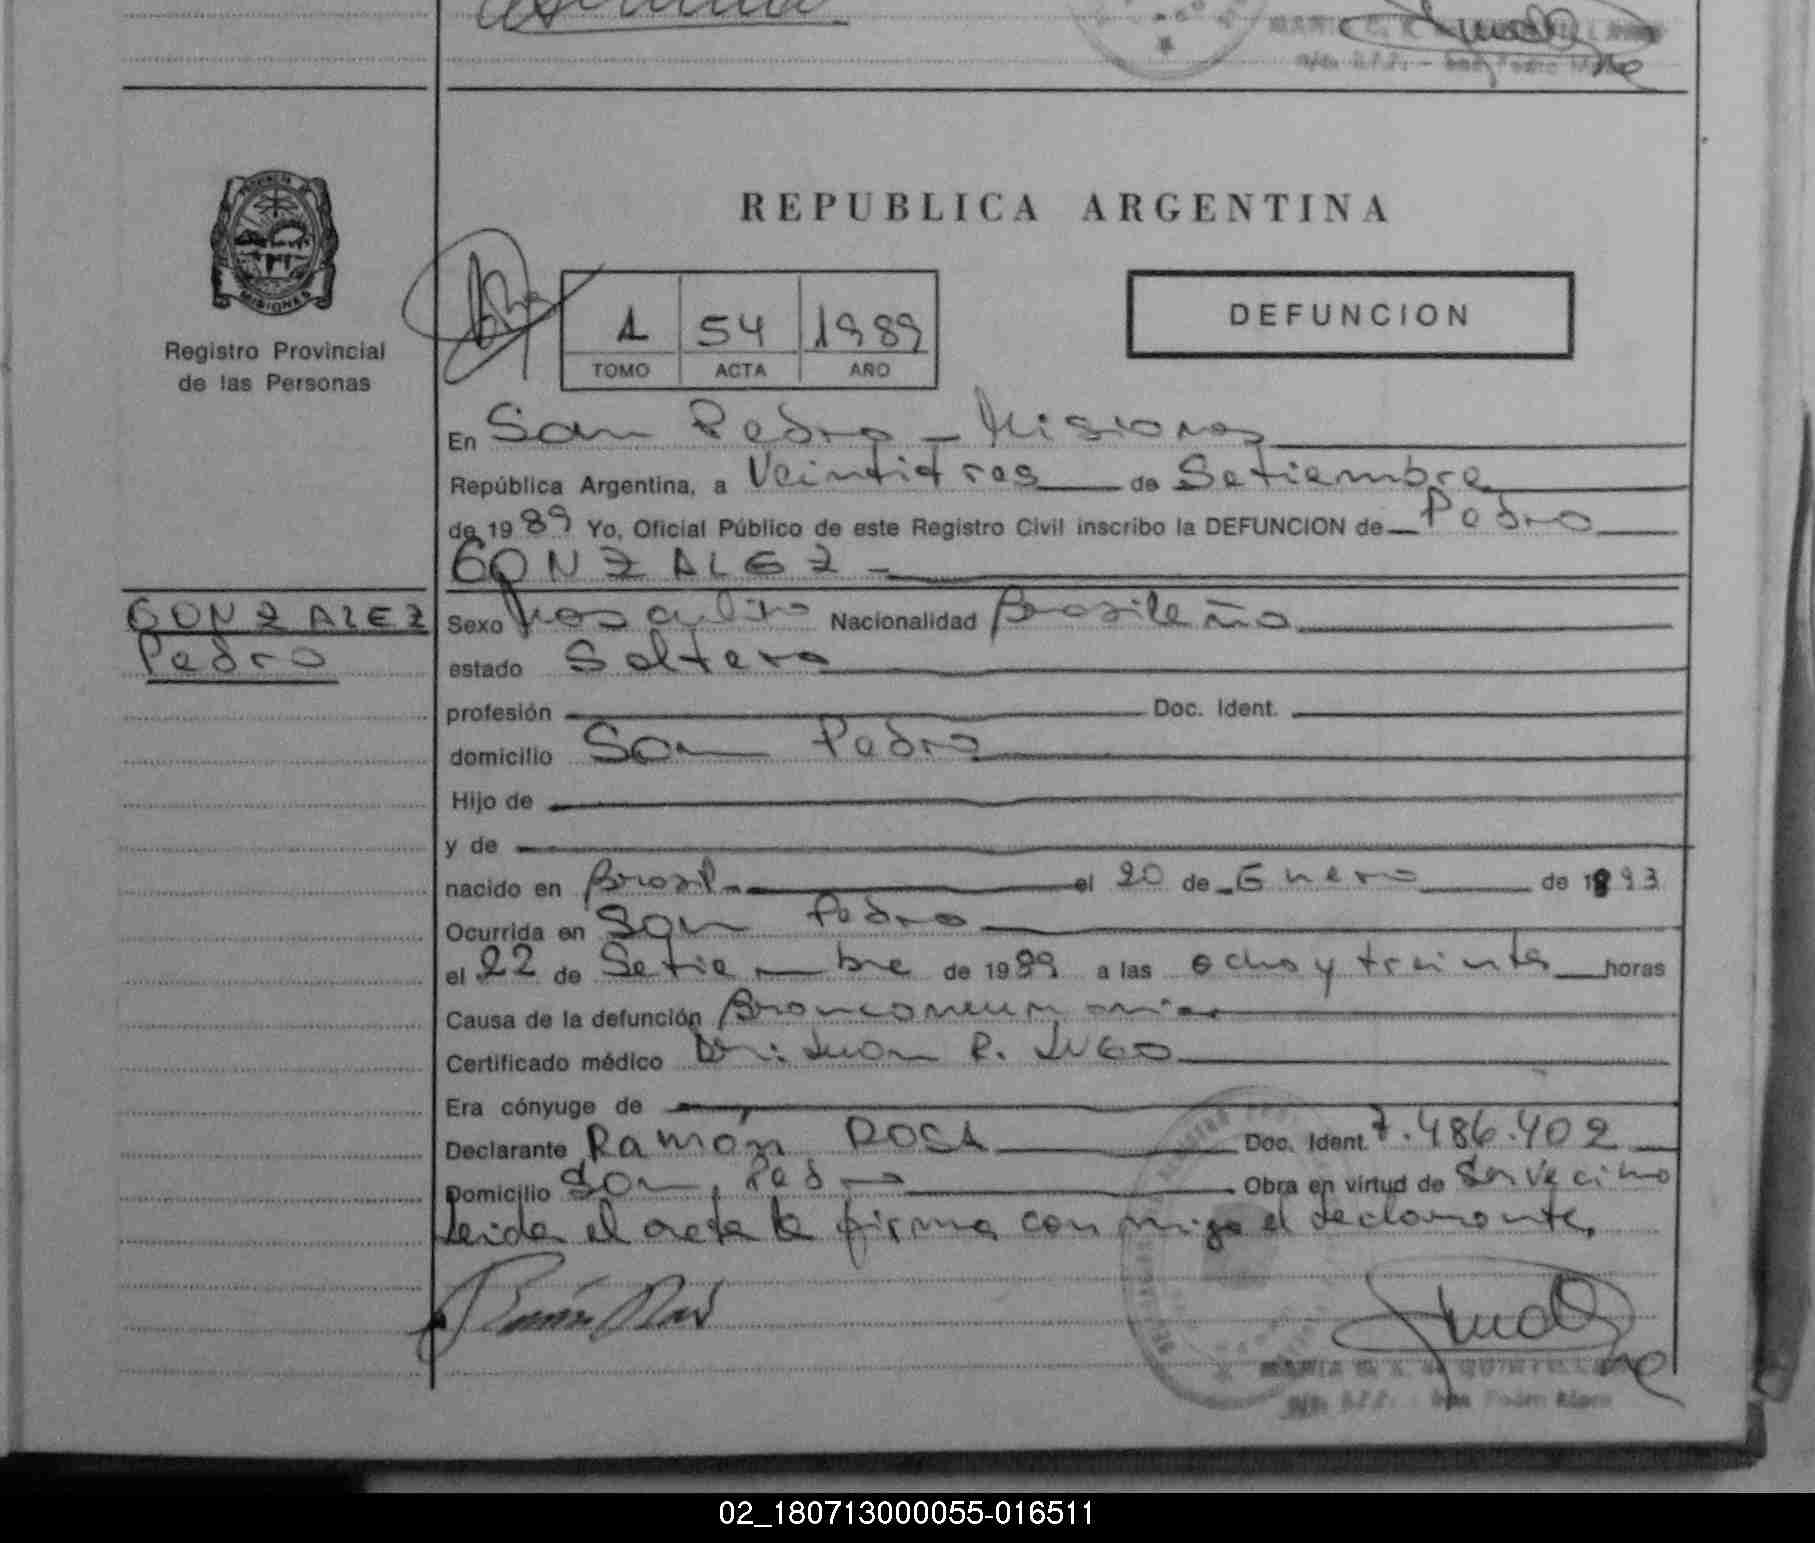 PROVINCIA DE
MISIONES
Registro Provincial
de las Personas
REPUBLICA ARGENTINA
1 54 1989
TOMO ACTA AÑO
DEFUNCION
En San Pedro - Misiones
República Argentina, a Veintitres de Setiembre
de 1989 Yo, Oficial Público de este Registro Civil inscribo la DEFUNCION de Pedro
GONZALEZ -
GONZALEZ
Pedro
Sexo Masculino Nacionalidad Brasileño
estado Soltero
profesión Doc. Ident.
domicilio San Pedro
Hijo de
y de
nacido en Brasil el 20 de Enero de 1893
Ocurrida en San Pedro
el 22 de Setiembre de 1989 a las ocho y treinta horas
Causa de la defunción Bronconeumonia
Certificado médico Dr. Juan R. LUGO
Era cónyuge de
Declarante Ramón ROSA Doc. Ident. 7.486.402
Domicilio San Pedro Obra en virtud de Ser vecino
Leida el acta la firma con migo el declarante.
MARIA QUINTELLA
San Pedro
02_180713000055-016511